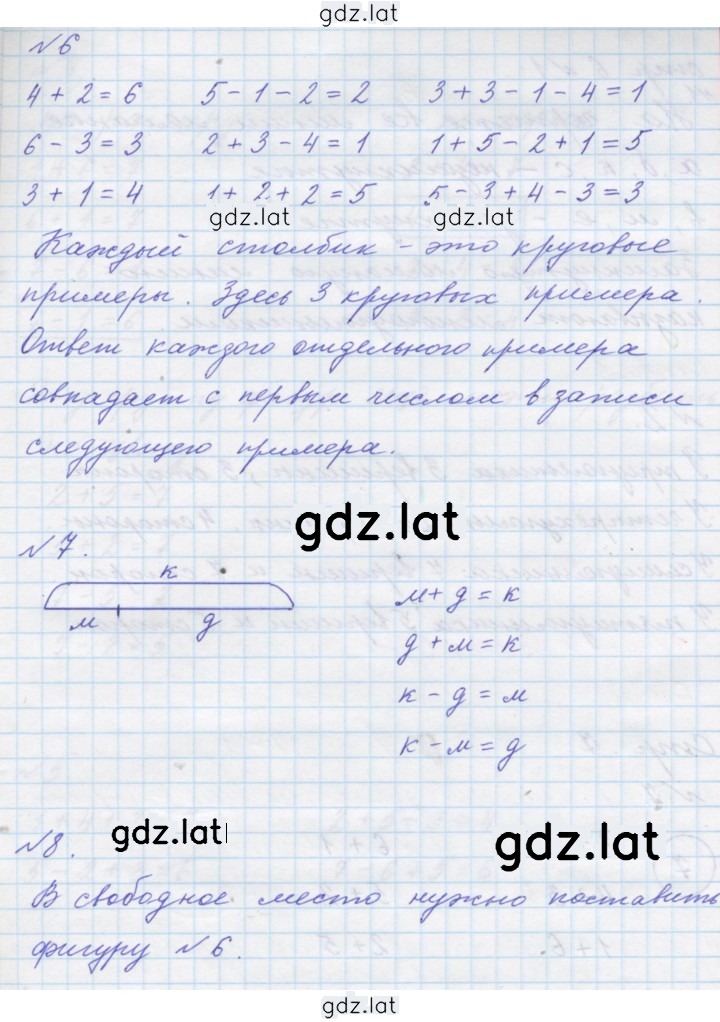 gdz.lat
№6
4 + 2 = 6 5 - 1 - 2 = 2 3 + 3 - 1 - 4 = 1
6 - 3 = 3 2 + 3 - 4 = 1 1 + 5 - 2 + 1 = 5
3 + 1 = 4 1 + 2 + 2 = 5 5 - 3 + 4 - 3 = 3
gdz.lat gdz.lat
Каждый столбик - это круговые
примеры. Здесь 3 круговых примера.
Ответ каждого отдельного примера
совпадает с первым числом в записи
следующего примера.
gdz.lat
№7.
к
м д
м + д = к
д + м = к
к - д = м
к - м = д
gdz.lat gdz.lat
№8.
В свободное место нужно поставить
фигуру №6.
gdz.lat